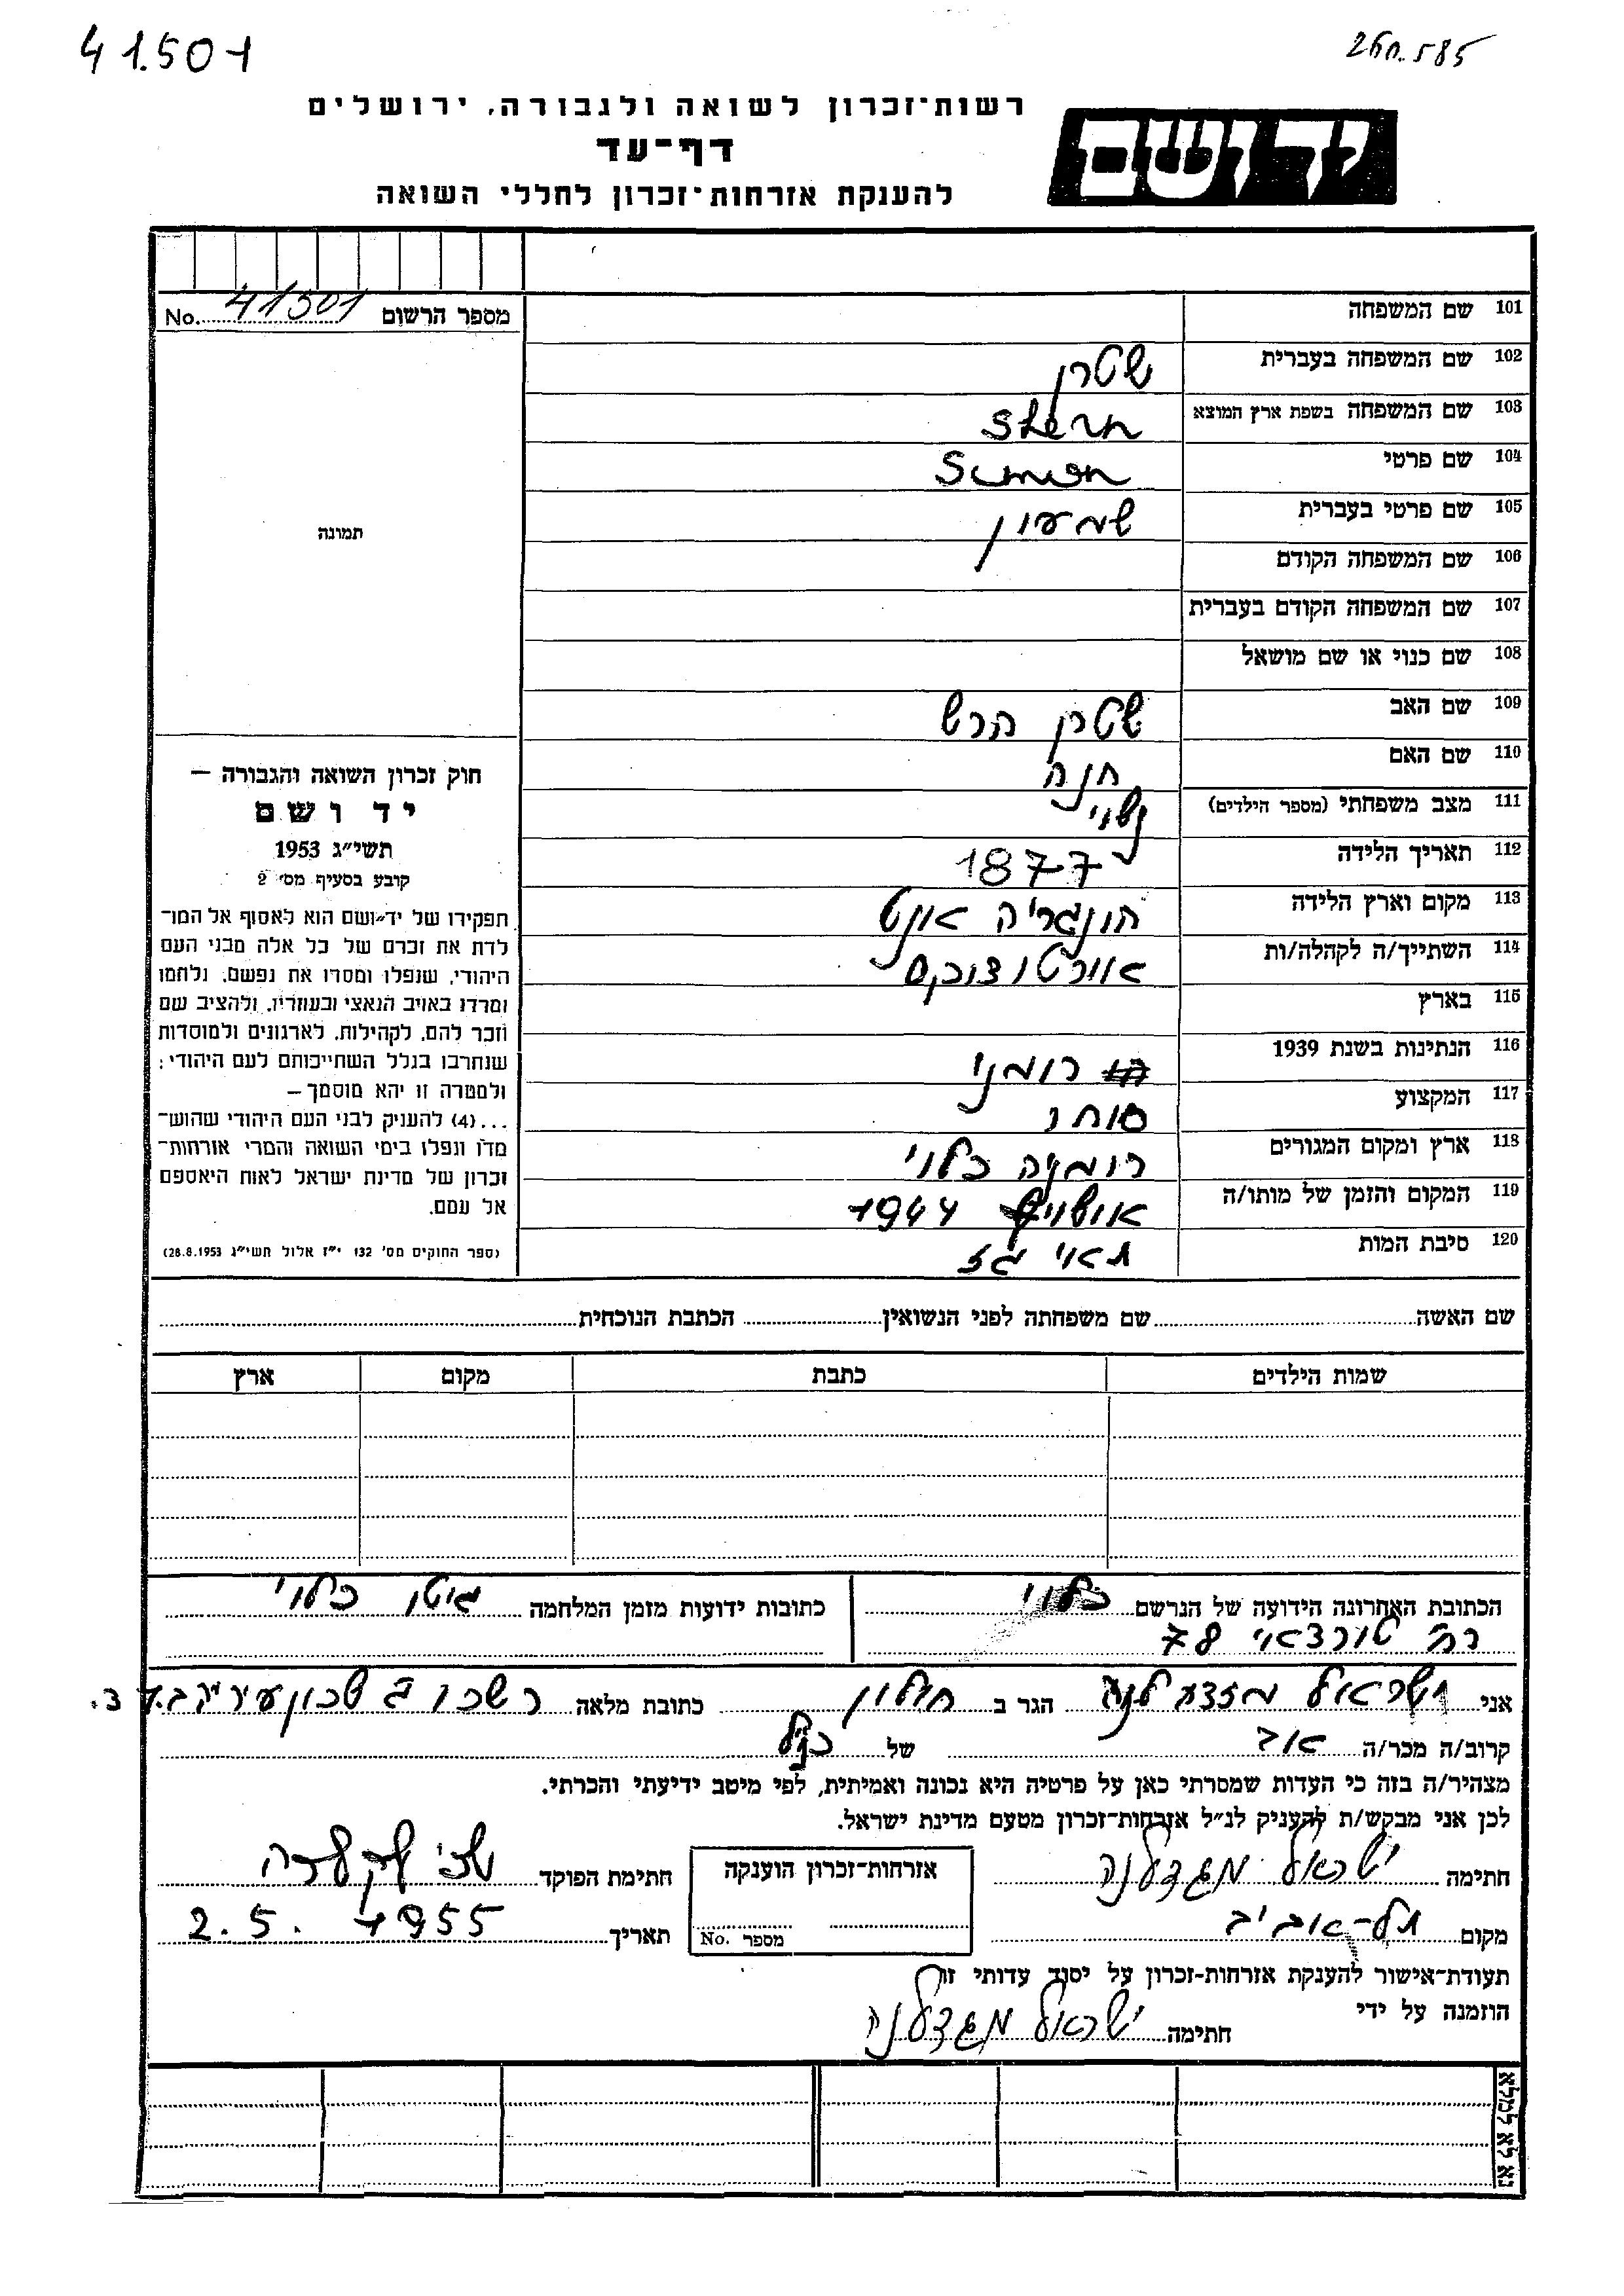 41.501
260.585
רשות־זכרון לשואה ולגבורה, ירושלים
דף־עד
להענקת אזרחות־זכרון לחללי השואה
יד ושם
מספר הרשום No. 41501
תמונה
101 שם המשפחה
102 שם המשפחה בעברית שטרן
103 שם המשפחה בשפת ארץ המוצא Stern
104 שם פרטי Simon
105 שם פרטי בעברית שמעון
106 שם המשפחה הקודם
107 שם המשפחה הקודם בעברית
108 שם כנוי או שם מושאל
109 שם האב שטרן הרש
110 שם האם חנה
111 מצב משפחתי (מספר הילדים) נשוי
112 תאריך הלידה 1877
113 מקום וארץ הלידה הונגריה
114 השתייך/ה לקהלה/ות אורטודוכס
115 בארץ
116 הנתינות בשנת 1939 רומני
117 המקצוע סוחר
118 ארץ ומקום המגורים רומניה כלוי
119 המקום והזמן של מותו/ה אושויץ 1944
120 סיבת המות תאי גז
חוק זכרון השואה והגבורה —
יד ושם
תשי״ג 1953
קובע בסעיף מס׳ 2
תפקידו של יד־ושם הוא לאסוף אל המו־
לדת את זכרם של כל אלה מבני העם
היהודי, שנפלו ומסרו את נפשם, נלחמו
ומרדו באויב הנאצי ובעוזריו, ולהציב שם
וזכר להם, לקהילות, לארגונים ולמוסדות
שנחרבו בגלל השתייכותם לעם היהודי;
ולמטרה זו יהא מוסמך —
...(4) להעניק לבני העם היהודי שהוש־
מדו ונפלו בימי השואה והמרי אזרחות־
זכרון של מדינת ישראל לאות היאספם
אל עמם.
(ספר החוקים מס׳ 132 י״ז אלול תשי״ג 28.8.1953)
שם האשה שם משפחתה לפני הנשואין הכתבת הנוכחית
שמות הילדים כתבת מקום ארץ
הכתובת האחרונה הידועה של הנרשם כלוי
רח׳ טורדאי 78
כתובות ידועות מזמן המלחמה גיטו כלוי
אני ישראל מגדלנה הגר ב חולון כתובת מלאה
קרוב/ה מכר/ה אב של כנ״ל
מצהיר/ה בזה כי העדות שמסרתי כאן על פרטיה היא נכונה ואמיתית, לפי מיטב ידיעתי והכרתי.
לכן אני מבקש/ת להעניק לנ״ל אזרחות־זכרון מטעם מדינת ישראל.
חתימה ישראל מגדלנה
אזרחות־זכרון הוענקה
מספר No.
חתימת הפוקד
מקום תל־אביב
תאריך 2.5.1955
תעודת־אישור להענקת אזרחות־זכרון על יסוד עדותי זו
הוזמנה על ידי
חתימה ישראל מגדלנה
נא לא למלא